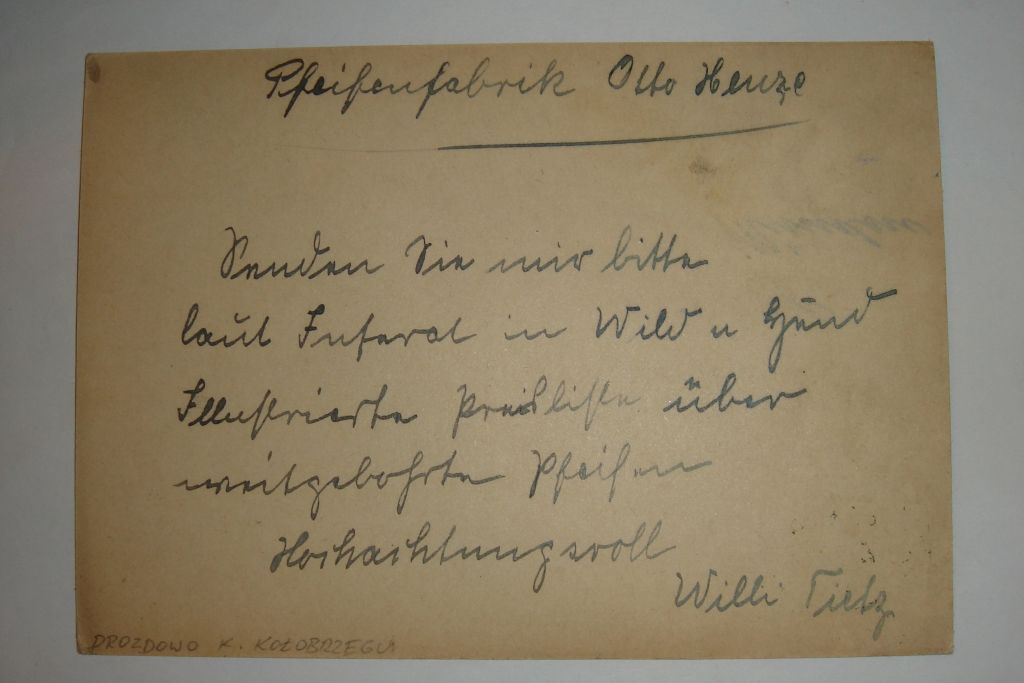 Pfeifenfabrik Otto Henze
Senden Sie mir bitte
laut Inserat in Wild u Hund
Illustrierte Preisliste über
weitgebohrte Pfeifen
Hochachtungsvoll
Willi Tietz
DROZDOWO K. KOŁOBRZEGU